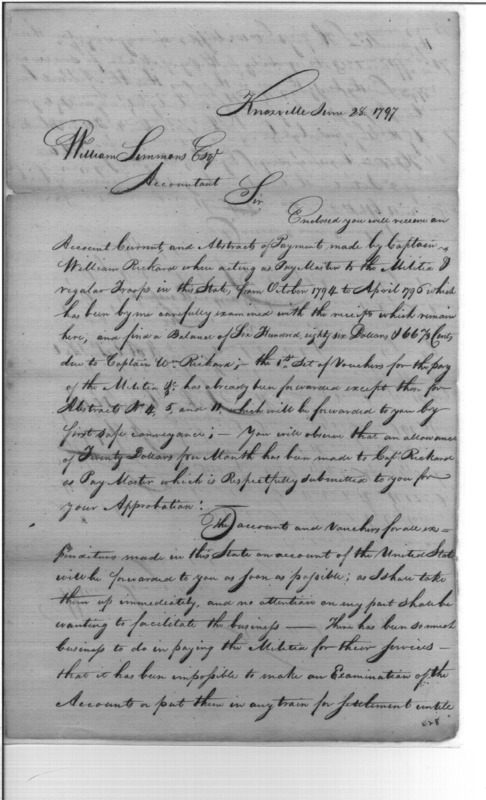 Knoxville June 28. 1797
William Simmons Esqr
Accountant
Sir
Enclosed you will receive an
Account Current, and Abstracts of Payment, made by Captain
William Rickard when acting as Pay Master to the Militia &
regular Troops in this State, from October 1794 to April 1796 which
has been by me carefully examined with the receipts which remain
here, and find a Balance of Six Hundred, eighty six Dollars & 66 2/3 Cents
due to Captain Wm Rickard; - the 1st Set of Vouchers for the pay
of the Militia &c has already been forwarded except those for
Abstracts No 4, 5, and 11, which will be forwarded to you by
first safe conveyance; - You will observe that an allowance
of Twenty Dollars pr Month has been made to Capt Rickard
as Pay Master which is Respectfully submitted to you for
your Approbation.
The account and Vouchers for all ex=
penditures made in this State on account of the United States
will be forwarded to you as soon as possible; as I shall take
them up immediately, and no attention on my part shall be
wanting to facilitate the business — There has been so much
business to do in paying the Militia for their services -
that it has been impossible to make an Examination of the
Accounts or put them in any train for settlement untill